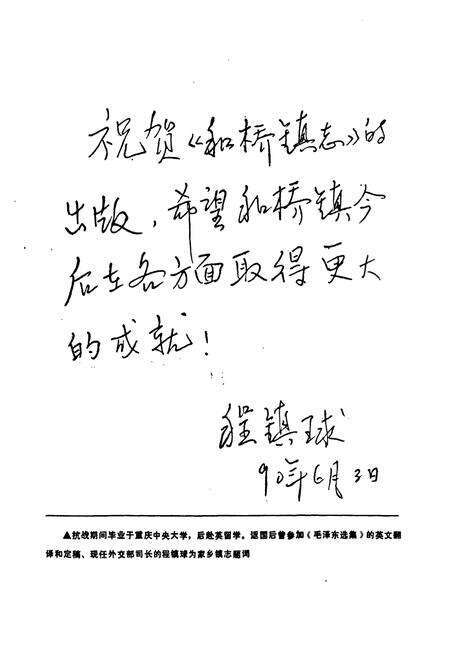 祝贺《和桥镇志》的
出版，希望和桥镇今
后在各方面取得更大
的成就！
程镇球
90年6月3日
▲抗战期间毕业于重庆中央大学，后赴英留学。返国后曾参加《毛泽东选集》的英文翻
译和定稿、现任外交部司长的程镇球为家乡镇志题词